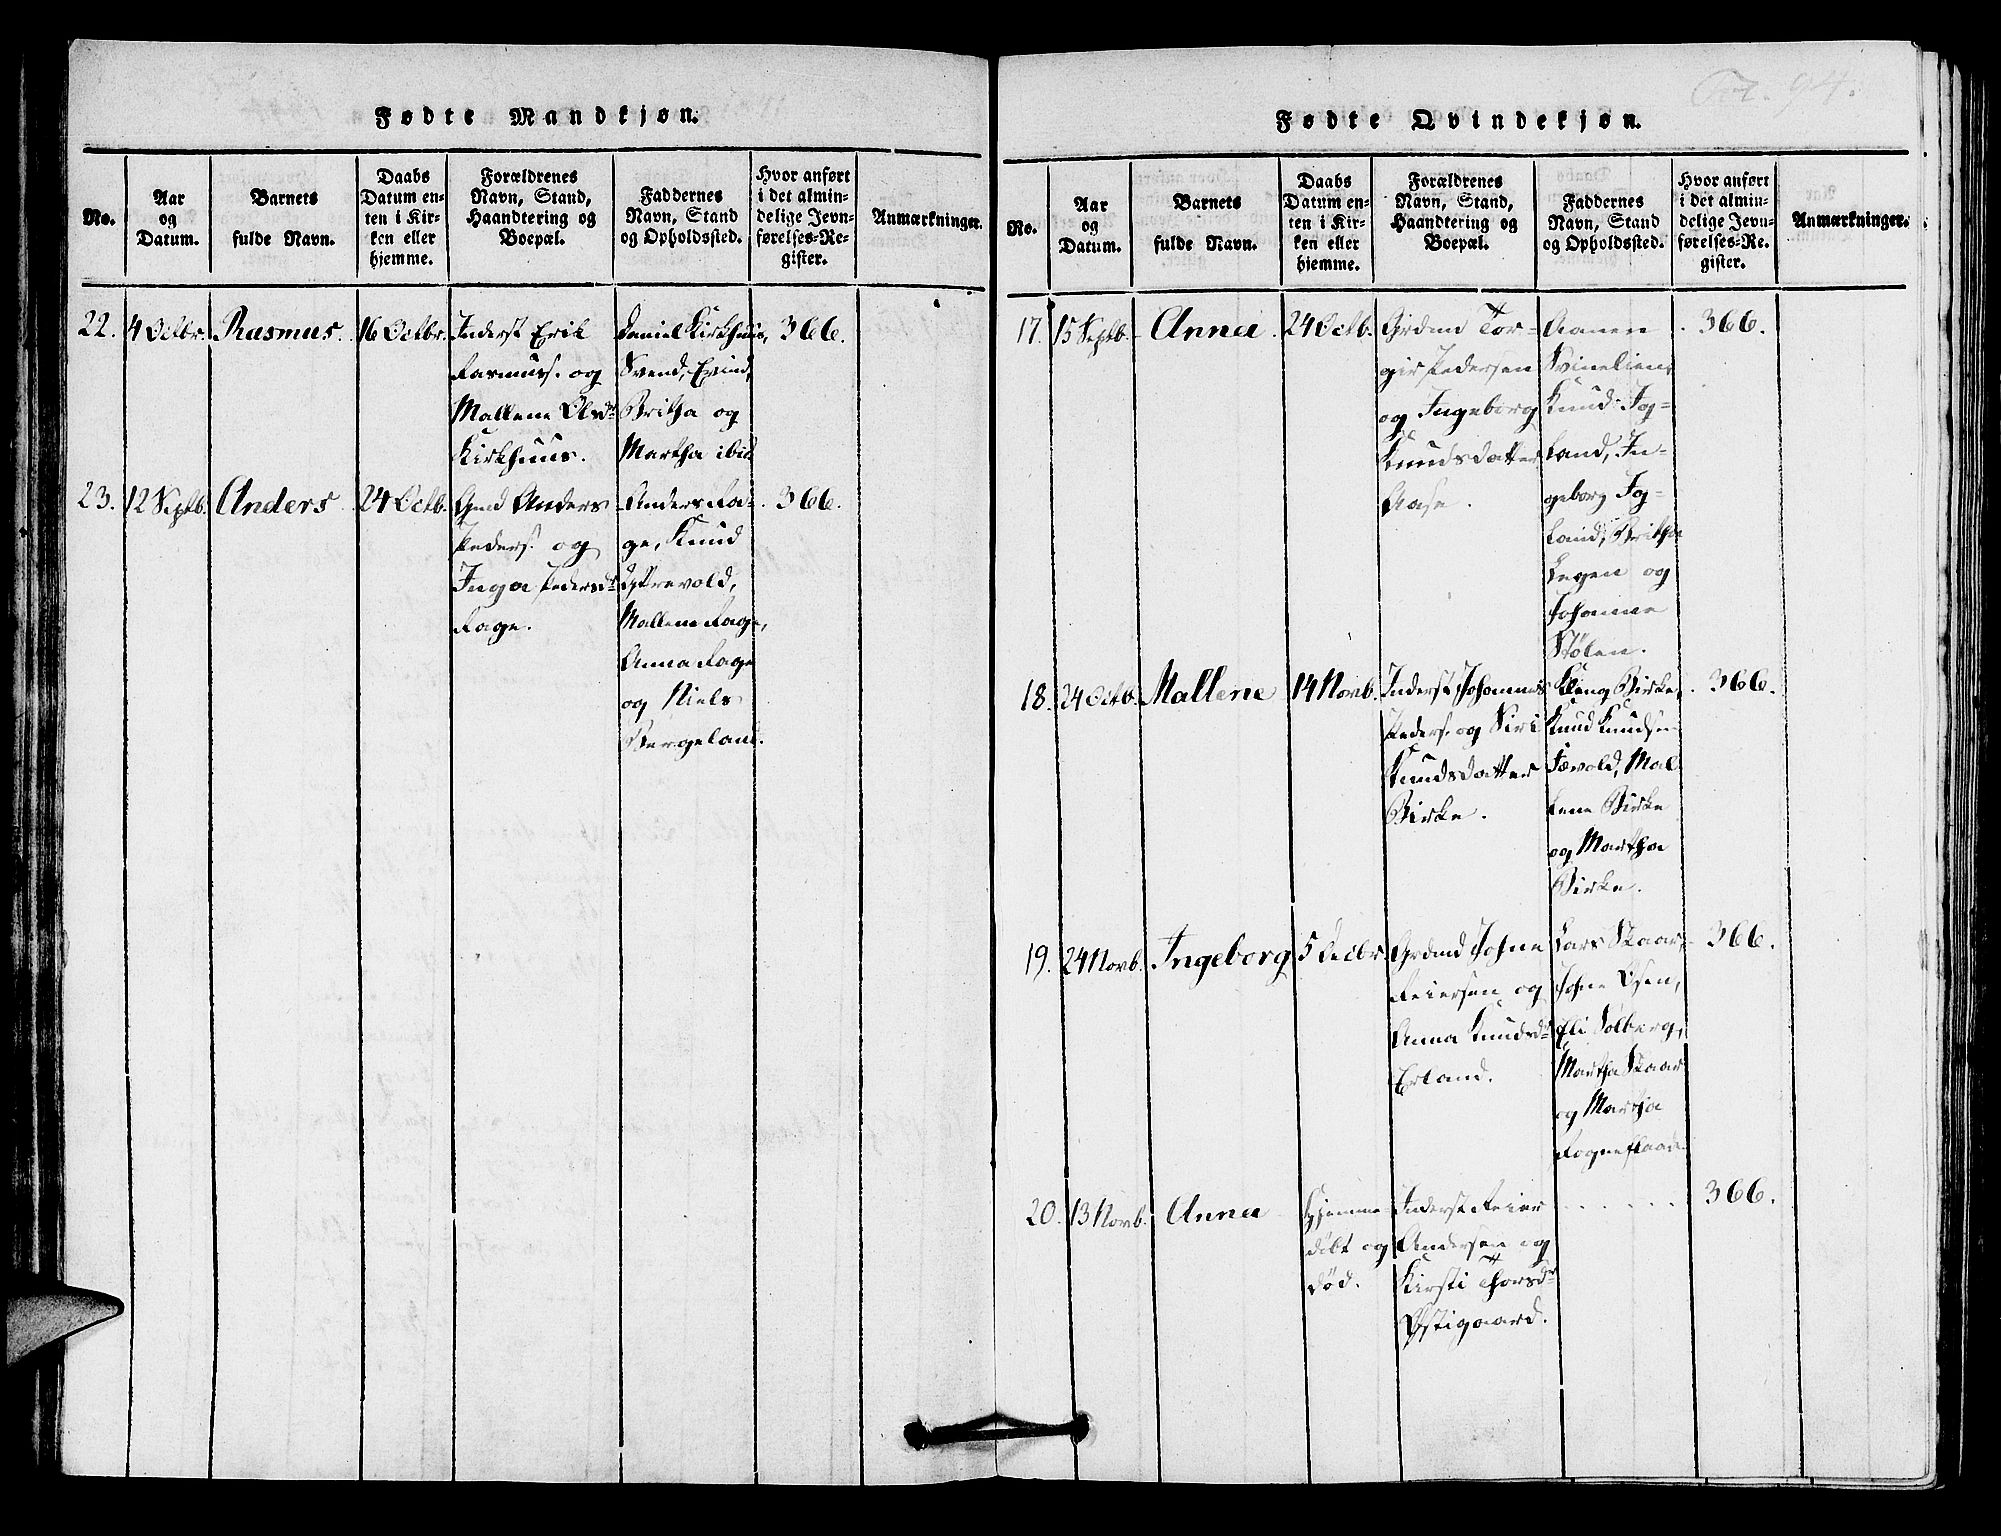 Fødte Mandkjøn.
No.
Aar
og
Datum.
Barnets
fulde Navn.
Daabs
Datum en-
ten i Kir-
ken eller
hjemme.
Forældrenes
Navn, Stand,
Haandtering og
Boepæl.
Faddernes
Navn, Stand
og Opholdssted.
Hvor anført
i det almin-
delige Jevn-
førelses-Re-
gister.
Anmærkninger.
22.
4 Octbr.
Rasmus.
16 Octbr.
Inderst Erik
Rasmuss. og
Mallene Olsdr
Kirkhuus.
Daniel Kirkhuus,
Svend, Eivind,
Britha og
Martha ibid
366.
23.
12 Septb.
Anders
24 Octb.
Gmd Anders
Peders. og
Inga Pedersdr
Fage.
Anders Fa-
ge, Knud
Mallene Fage,
Anna Fage
og Niels
Bergeland.
366.
Fødte Qvindekjøn.
No.
Aar
og
Datum.
Barnets
fulde Navn.
Daabs
Datum en-
ten i Kir-
ken eller
hjemme.
Forældrenes
Navn, Stand,
Haandtering og
Boepæl.
Faddernes
Navn, Stand
og Opholdssted.
Hvor anført
i det almin-
delige Jevn-
førelses-Re-
gister.
Anmærkninger.
17.
15 Septb.
Anna
24 Octb.
Grdmd Tor-
gir Pedersen
og Ingeborg
Knudsdatter
Aase.
Aanen
Svinelien,
Knud Jog-
land, In-
geborg Jog-
land, Britha
Legen og
Johanna
Stølen.
366.
18.
24 Octb.
Mallene
14 Novb.
Inderst Johannes
Peders. og Siri
Knudsdatter
Birke.
Kleng Birke,
Knud Knudsen
Tævold, Mal
lene Birke
og Martha
Birke.
366.
19.
24 Novb.
Ingeborg
5 Decbr
Grdmd Johne
Reiersen og
Anna Knudsdr
Erland.
Lars Skaar,
Johne Osen,
Eli Solberg,
Martha Skaar
og Martha
366.
20.
13 Novb.
Anna
Hjemme
døbt og
død.
Inderst Reier
Andersen og
Kirsti Thorsdr
Østigaard.
. . . . . .
366.